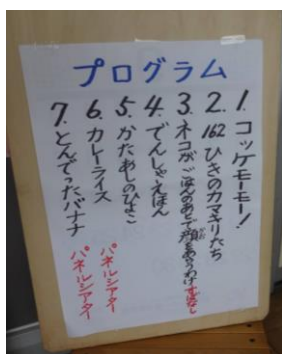 プログラム
1. コッケモーモー!
2. 162ひきのカマキリたち
3. ネコがごはんのあとで顔をあらうわけ すばなし
4. でんしゃえほん
5. かたあしのひよこ パネルシアター
6. カレーライス
7. とんでったバナナ パネルシアター